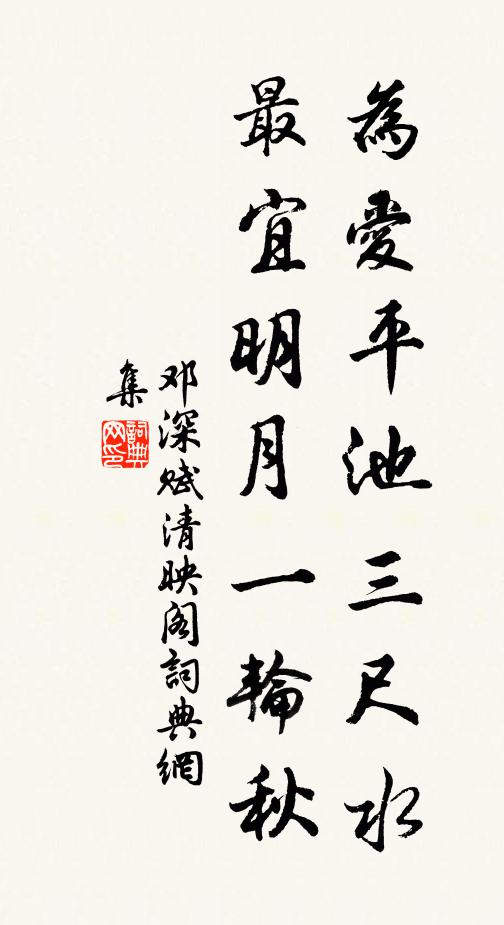 為愛平池三尺水
最宜明月一輪秋
邓深赋清映阁詞典網
集
詞典网印